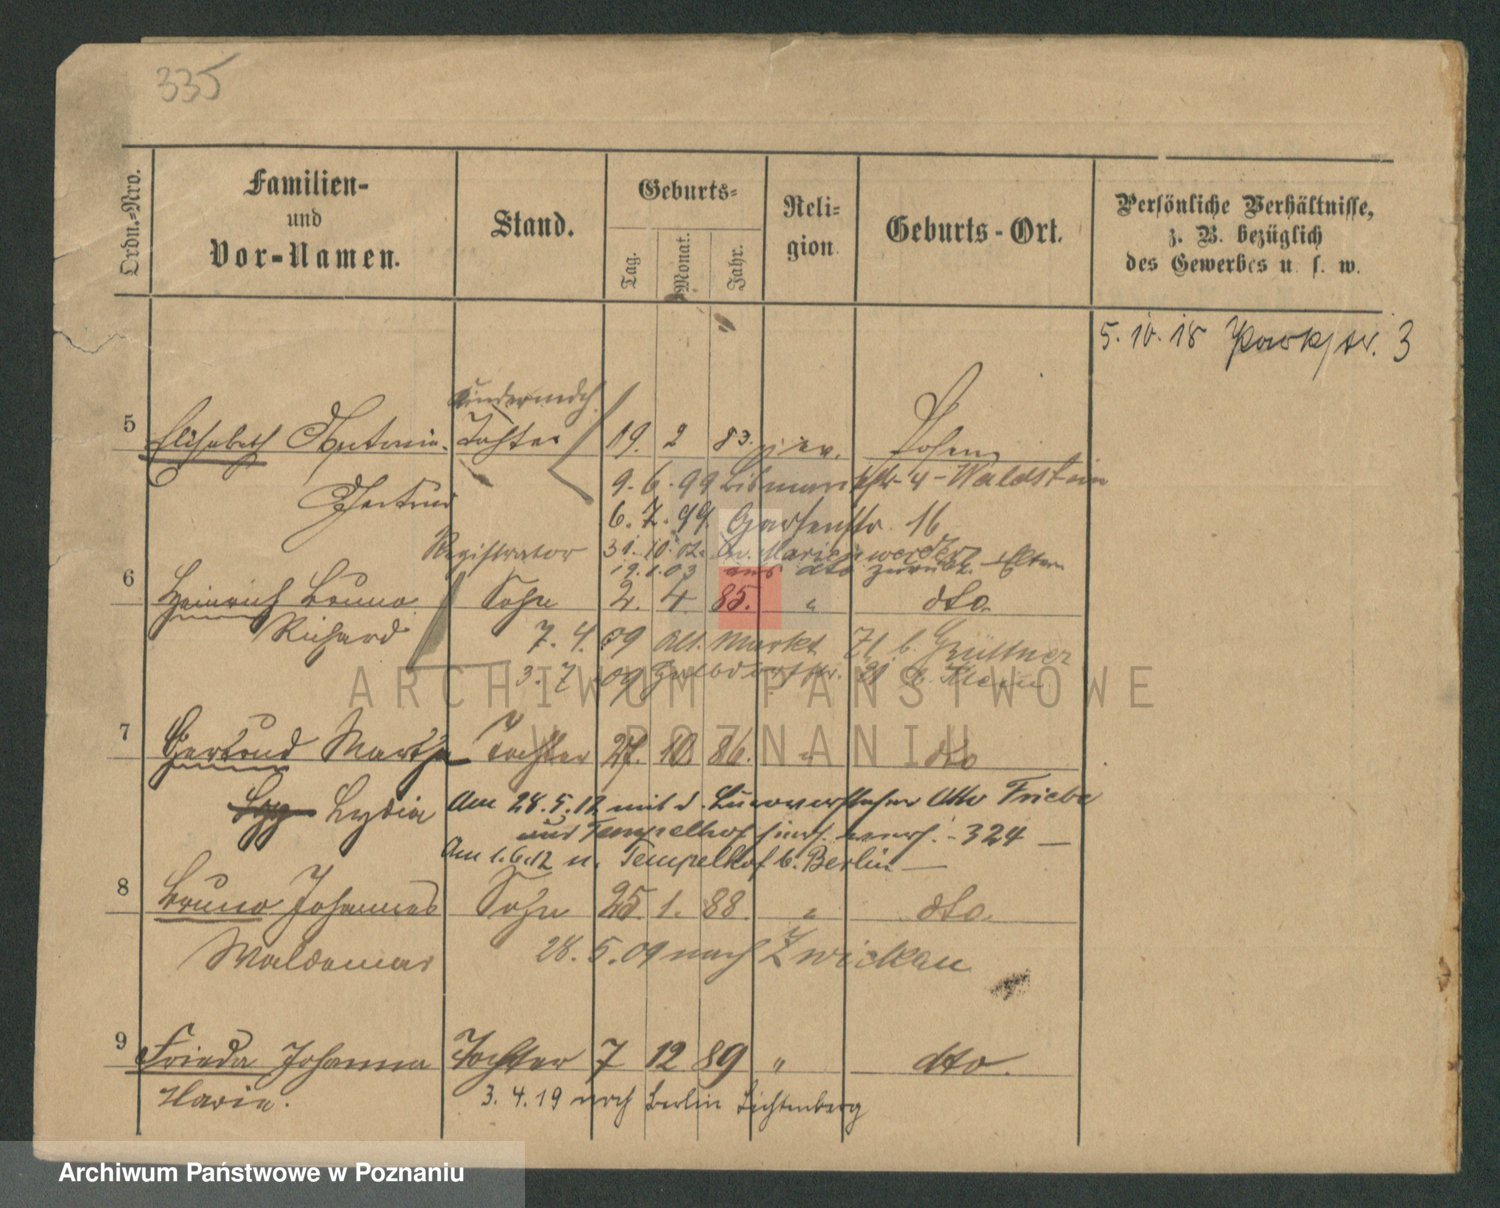 335
Ordn.-Nro.
Familien-
und
Vor-Namen.
Stand.
Geburts-
Tag.
Monat.
Jahr.
Reli-
gion
Geburts-Ort.
Persönliche Verhältnisse,
z. B. bezüglich
des Gewerbes u. s. w.
5. 10. 18 Parkstr. 3
5 Elisabeth Antonie Tochter 19. 2 83. ev. Posen
Gertrud 9. 6. 99 Bismarckstr. 4 - Waldstein
6. 7. 99 Gartenstr. 16
Registrator 31. 10. 02. Marienwerder
19. 1. 03 aus dto zurück. Eltern
6 Heinrich Bruno Sohn 2. 4. 85. " dto.
Richard 7. 4. 09 Alt. Markt 71 b. Grüttner
3. 7. 09
7 Gertrud Martha Tochter 27. 10. 86. " dto
Lydia Am 28. 5. 12 mit d. Bürovorsteher Otto Friebe
aus Tempelhof 324
Am 1. 6. 12 n. Tempelhof b. Berlin
8 Bruno Johannes Sohn 25. 1. 88. " dto.
Waldemar 28. 5. 09 nach Zwickau
9 Frieda Johanna Tochter 7 12 89 " dto.
Maria. 3. 4. 19 nach Berlin Lichtenberg
ARCHIWUM PAŃSTWOWE
W POZNANIU
Archiwum Państwowe w Poznaniu